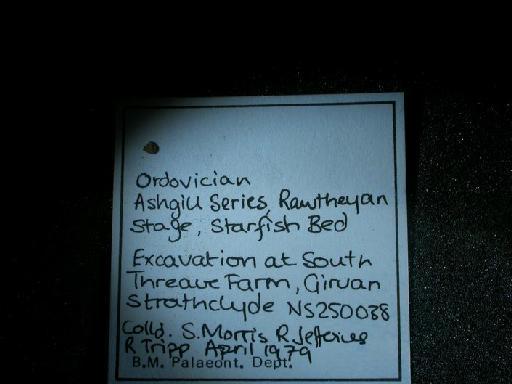 Ordovician
Ashgill Series, Rawtheyan
Stage, Starfish Bed
Excavation at South
Threave Farm, Girvan
Strathclyde NS250038
Colld. S. Morris R. Jefferies
R Tripp April 1979
B.M. Palaeont. Dept.